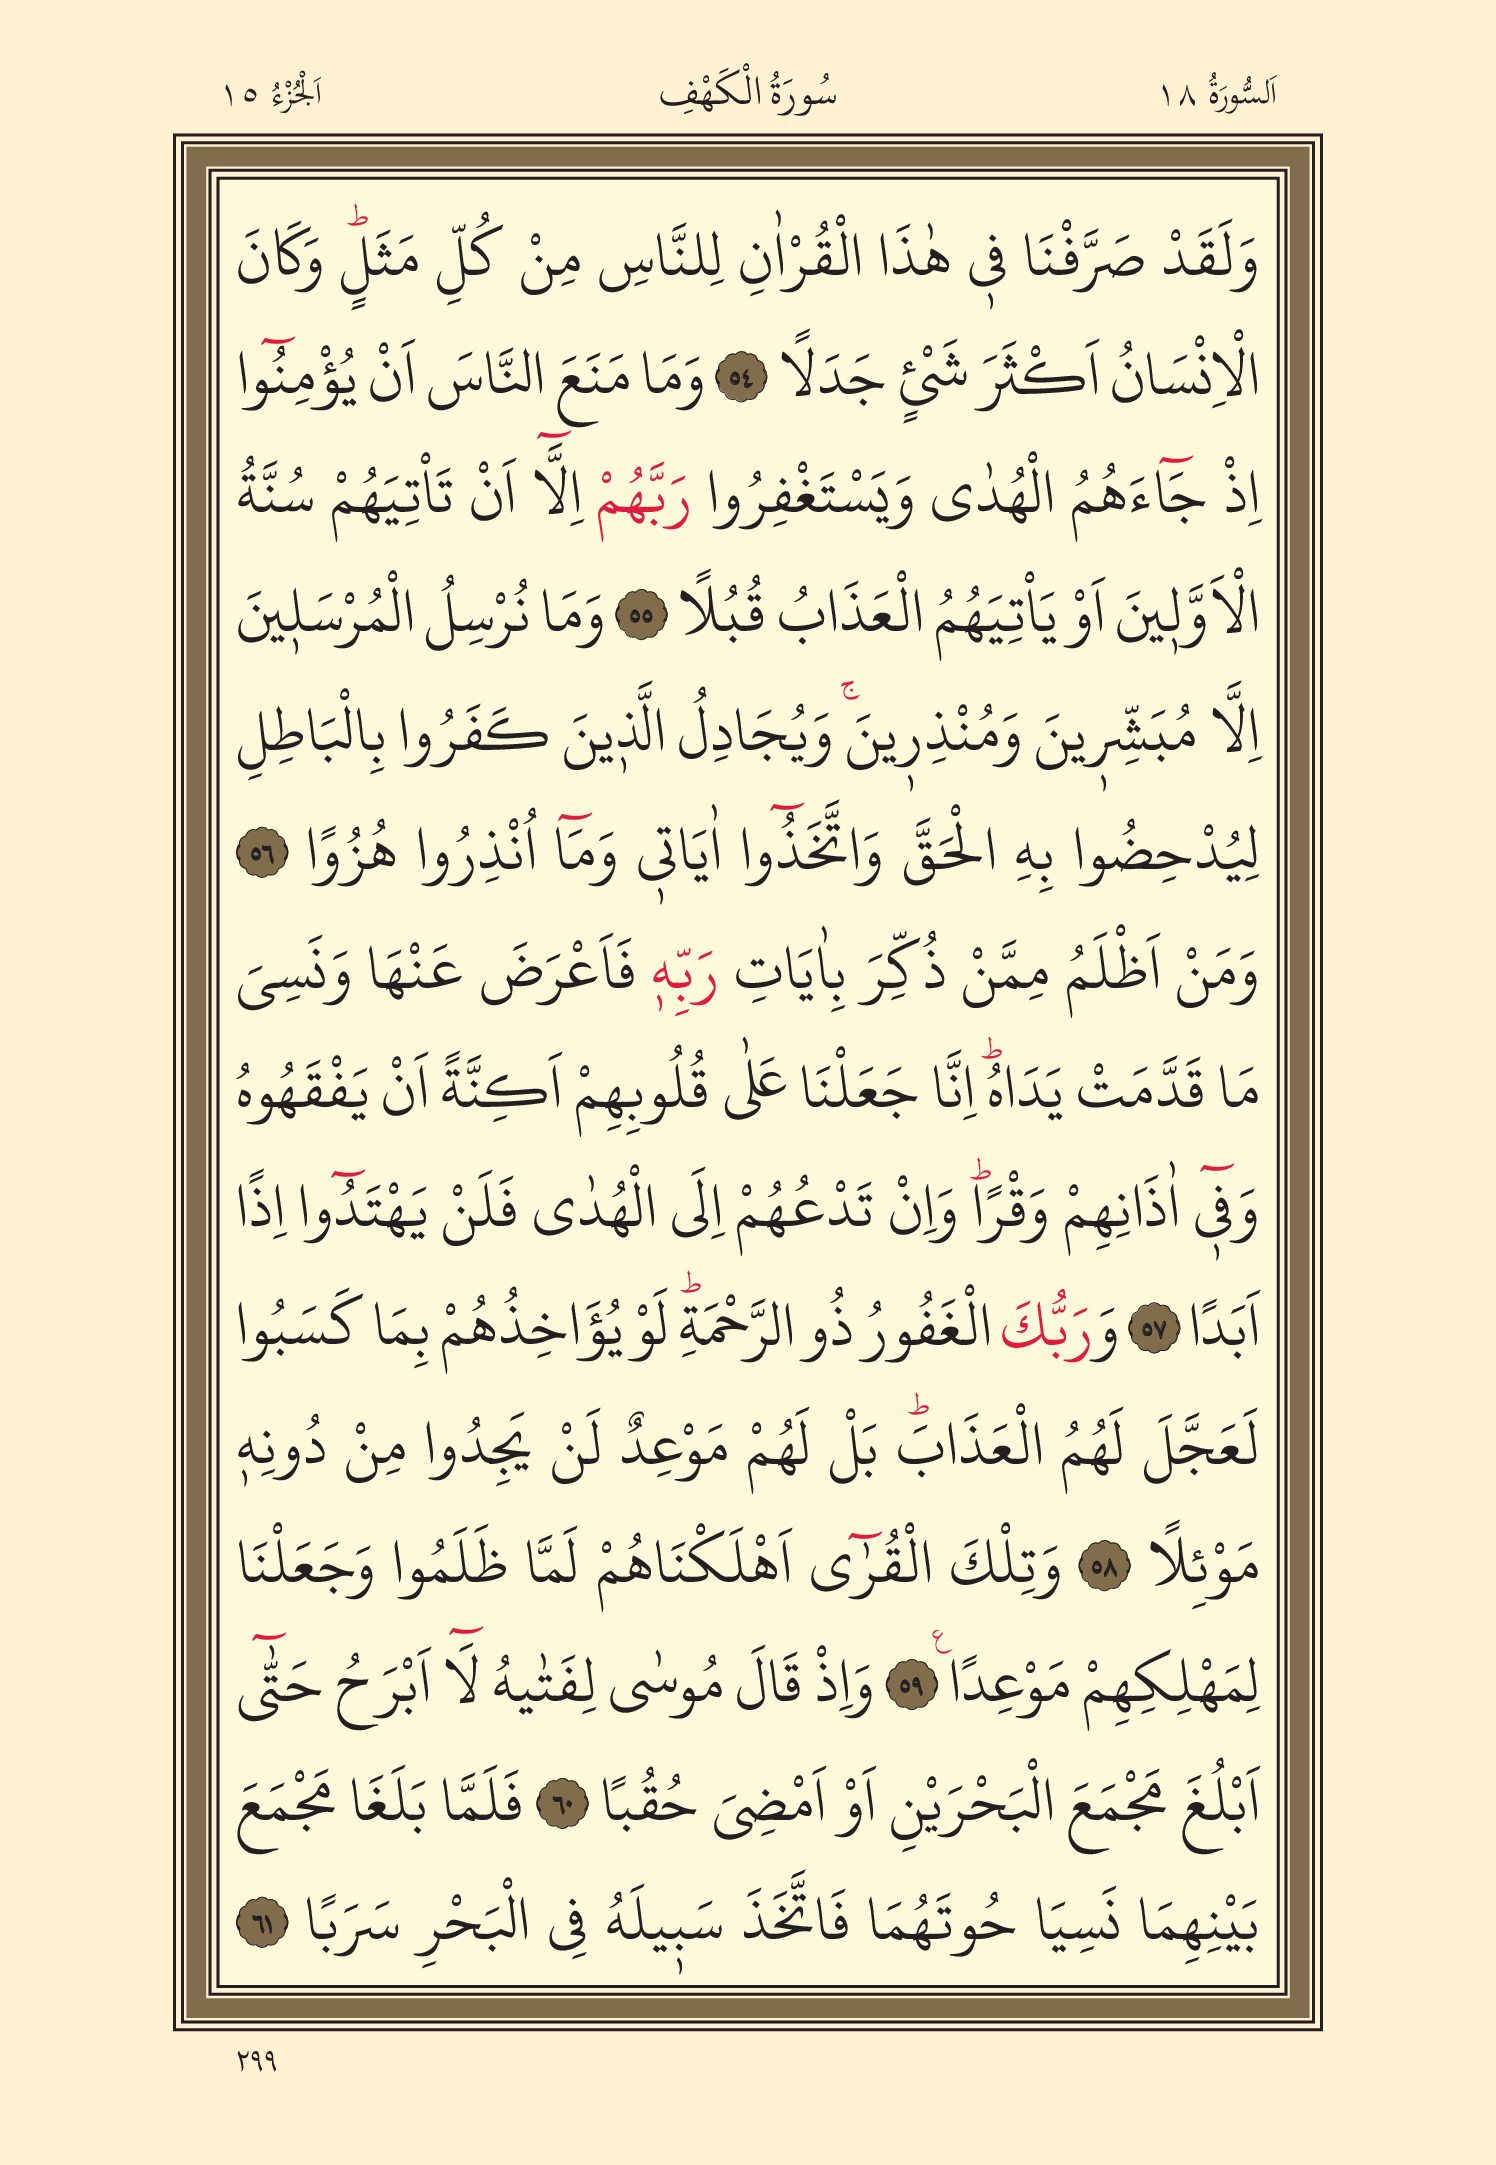 اَلسُّورَةُ ١٨ سُورَةُ الْكَهْفِ اَلْجُزْءُ ١٥
وَلَقَدْ صَرَّفْنَا فٖي هٰذَا الْقُرْاٰنِ لِلنَّاسِ مِنْ كُلِّ مَثَلٍؕ وَكَانَ
الْاِنْسَانُ اَكْثَرَ شَيْئٍ جَدَلًا ٥٤ وَمَا مَنَعَ النَّاسَ اَنْ يُؤْمِنُٓوا
اِذْ جَٓاءَهُمُ الْهُدٰى وَيَسْتَغْفِرُوا رَبَّهُمْ اِلَّٓا اَنْ تَاْتِيَهُمْ سُنَّةُ
الْاَوَّلٖينَ اَوْ يَاْتِيَهُمُ الْعَذَابُ قُبُلًا ٥٥ وَمَا نُرْسِلُ الْمُرْسَلٖينَ
اِلَّا مُبَشِّرٖينَ وَمُنْذِرٖينَۚ وَيُجَادِلُ الَّذٖينَ كَفَرُوا بِالْبَاطِلِ
لِيُدْحِضُوا بِهِ الْحَقَّ وَاتَّخَذُٓوا اٰيَاتٖي وَمَٓا اُنْذِرُوا هُزُوًا ٥٦
وَمَنْ اَظْلَمُ مِمَّنْ ذُكِّرَ بِاٰيَاتِ رَبِّهٖ فَاَعْرَضَ عَنْهَا وَنَسِيَ
مَا قَدَّمَتْ يَدَاهُؕ اِنَّا جَعَلْنَا عَلٰى قُلُوبِهِمْ اَكِنَّةً اَنْ يَفْقَهُوهُ
وَفٖٓي اٰذَانِهِمْ وَقْرًاؕ وَاِنْ تَدْعُهُمْ اِلَى الْهُدٰى فَلَنْ يَهْتَدُٓوا اِذًا
اَبَدًا ٥٧ وَرَبُّكَ الْغَفُورُ ذُو الرَّحْمَةِؕ لَوْ يُؤَاخِذُهُمْ بِمَا كَسَبُوا
لَعَجَّلَ لَهُمُ الْعَذَابَؕ بَلْ لَهُمْ مَوْعِدٌ لَنْ يَجِدُوا مِنْ دُونِهٖ
مَوْئِلًا ٥٨ وَتِلْكَ الْقُرٰٓى اَهْلَكْنَاهُمْ لَمَّا ظَلَمُوا وَجَعَلْنَا
لِمَهْلِكِهِمْ مَوْعِدًا ع ٥٩ وَاِذْ قَالَ مُوسٰى لِفَتٰيهُ لَٓا اَبْرَحُ حَتّٰٓى
اَبْلُغَ مَجْمَعَ الْبَحْرَيْنِ اَوْ اَمْضِيَ حُقُبًا ٦٠ فَلَمَّا بَلَغَا مَجْمَعَ
بَيْنِهِمَا نَسِيَا حُوتَهُمَا فَاتَّخَذَ سَبٖيلَهُ فِي الْبَحْرِ سَرَبًا ٦١
٢٩٩